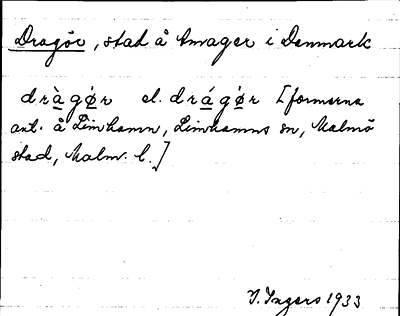 Dragör, stad å Amager i Danmark
dràgǿr el. drágǿr [formerna
ant. å Limhamn, Limhamns sn, Malmö
stad, Malm. l.]
I. Ingers 1933